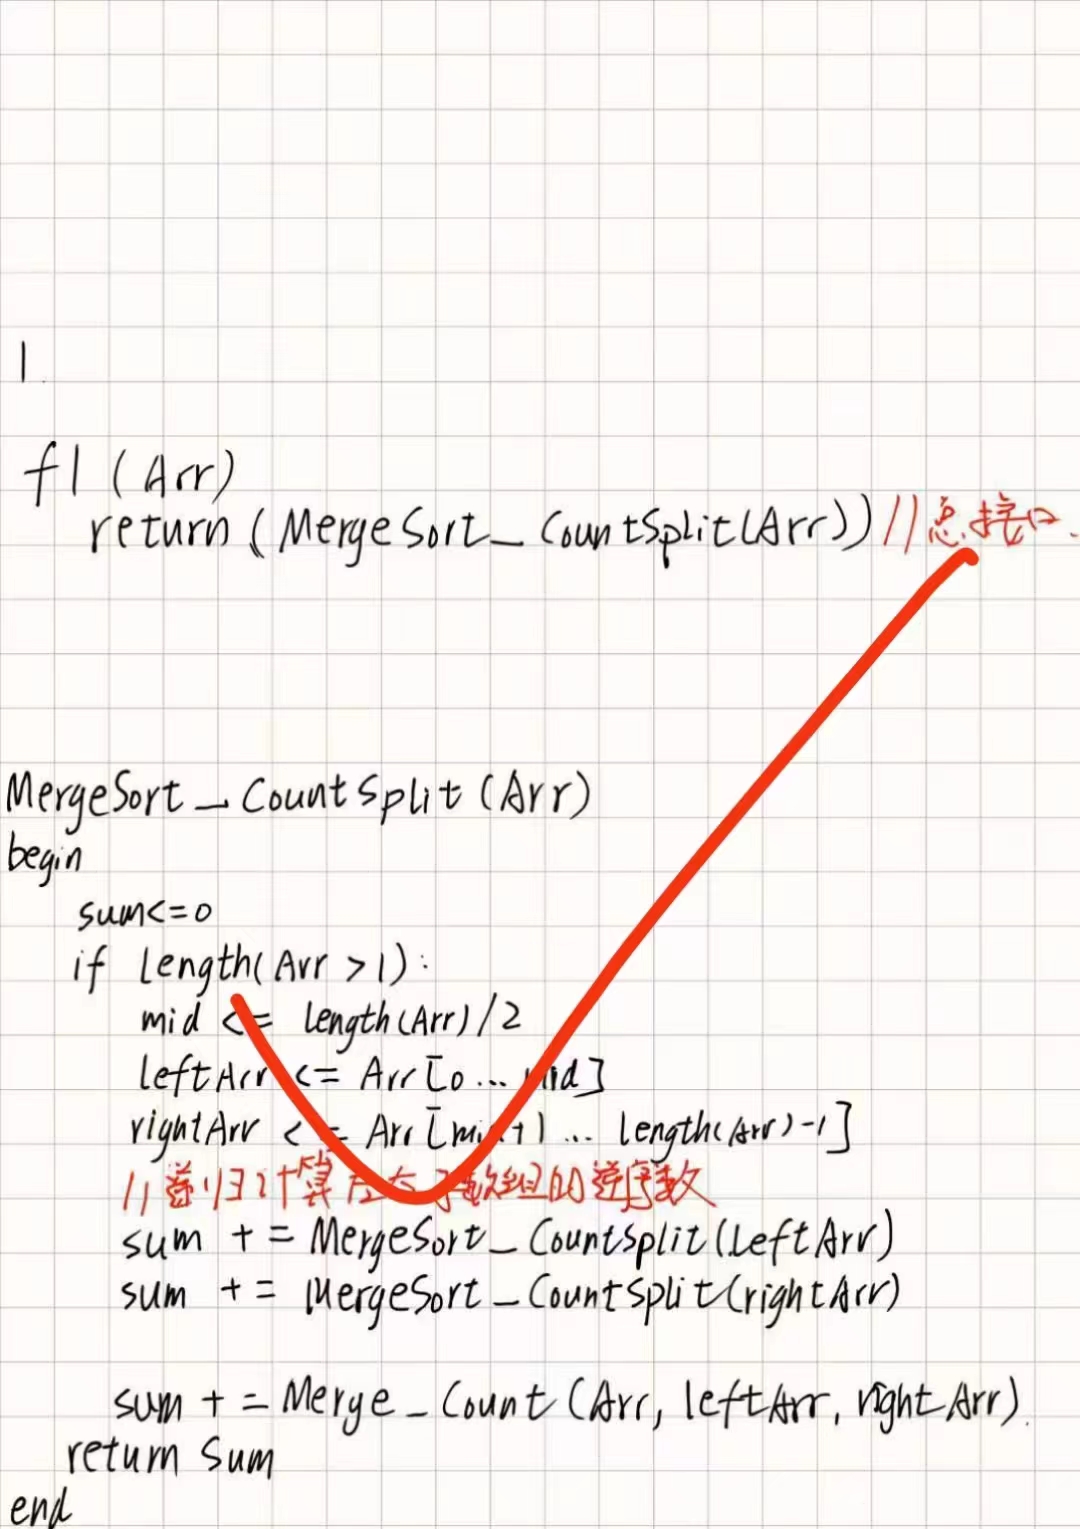 1.
f1 (Arr)
return (MergeSort_CountSplit(Arr)) //总接口.
MergeSort_CountSplit (Arr)
begin
sum<=0
if length(Arr >1):
mid <= length(Arr)/2
leftArr <= Arr[0... mid]
rightArr <= Arr[mid+1 ... length(Arr)-1]
//递归计算左右子数组的逆序数
sum += MergeSort_CountSplit(leftArr)
sum += MergeSort_CountSplit(rightArr)
sum += Merge_Count (Arr, leftArr, rightArr).
return sum
end